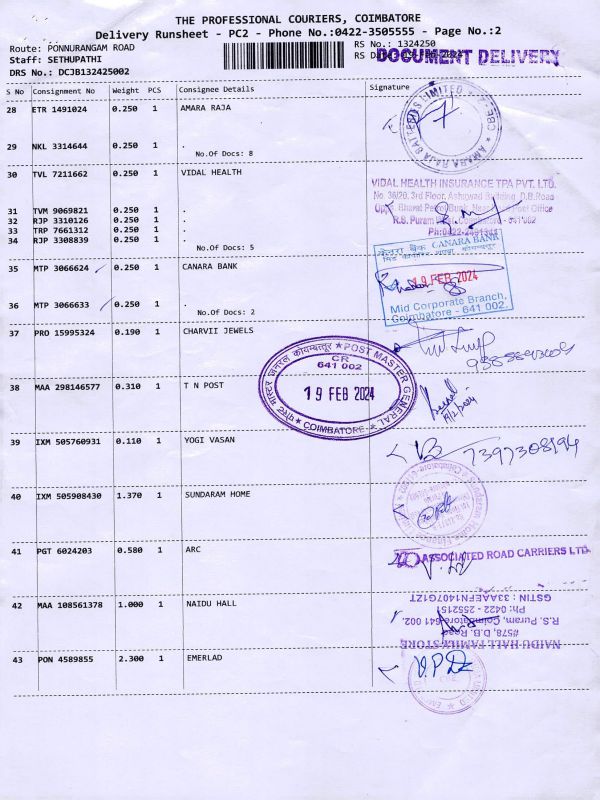 THE PROFESSIONAL COURIERS, COIMBATORE
Delivery Runsheet - PC2 - Phone No.:0422-3505555 - Page No.:2
Route: PONNURANGAM ROAD
Staff: SETHUPATHI
DRS No.: DCJB132425002
RS No.: 1324250
DOCUMENT DELIVERY
S No Consignment No Weight PCS Consignee Details Signature
28 ETR 1491024 0.250 1 AMARA RAJA
29 NKL 3314644 0.250 1 .
No.Of Docs: 8
30 TVL 7211662 0.250 1 VIDAL HEALTH
VIDAL HEALTH INSURANCE TPA PVT. LTD.
No. 36/20, 3rd Floor, Ashirwad Building, D.B.Road
R.S. Puram
Coimbatore - 641 002
31 TVM 9069821 0.250 1 .
32 RJP 3310126 0.250 1 .
33 TRP 7661312 0.250 1 .
34 RJP 3308839 0.250 1 .
No.Of Docs: 5
35 MTP 3066624 0.250 1 CANARA BANK
केनरा बैंक CANARA BANK
19 FEB 2024
Mid Corporate Branch,
Coimbatore - 641 002.
36 MTP 3066633 0.250 1 .
No.Of Docs: 2
37 PRO 15995324 0.190 1 CHARVII JEWELS
POST MASTER GENERAL
CR
641 002
19 FEB 2024
COIMBATORE
38 MAA 298146577 0.310 1 T N POST
39 IXM 505760931 0.110 1 YOGI VASAN
7397308194
40 IXM 505908430 1.370 1 SUNDARAM HOME
41 PGT 6024203 0.580 1 ARC
ASSOCIATED ROAD CARRIERS LTD.
42 MAA 108561378 1.000 1 NAIDU HALL
NAIDU HALL FAMILY STORE
#578, D.B. Road,
R.S. Puram, Coimbatore-641 002.
Ph: 0422 - 2552151
GSTIN : 33AAEFN1407G1ZT
43 PON 4589855 2.300 1 EMERLAD